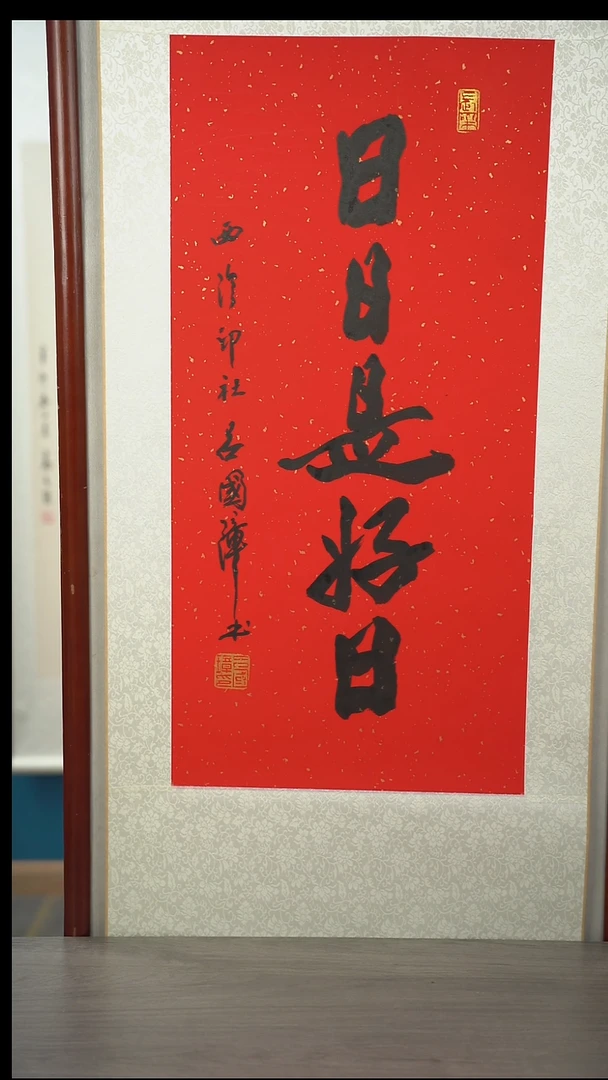 日日是好日
西泠印社吕國璋书